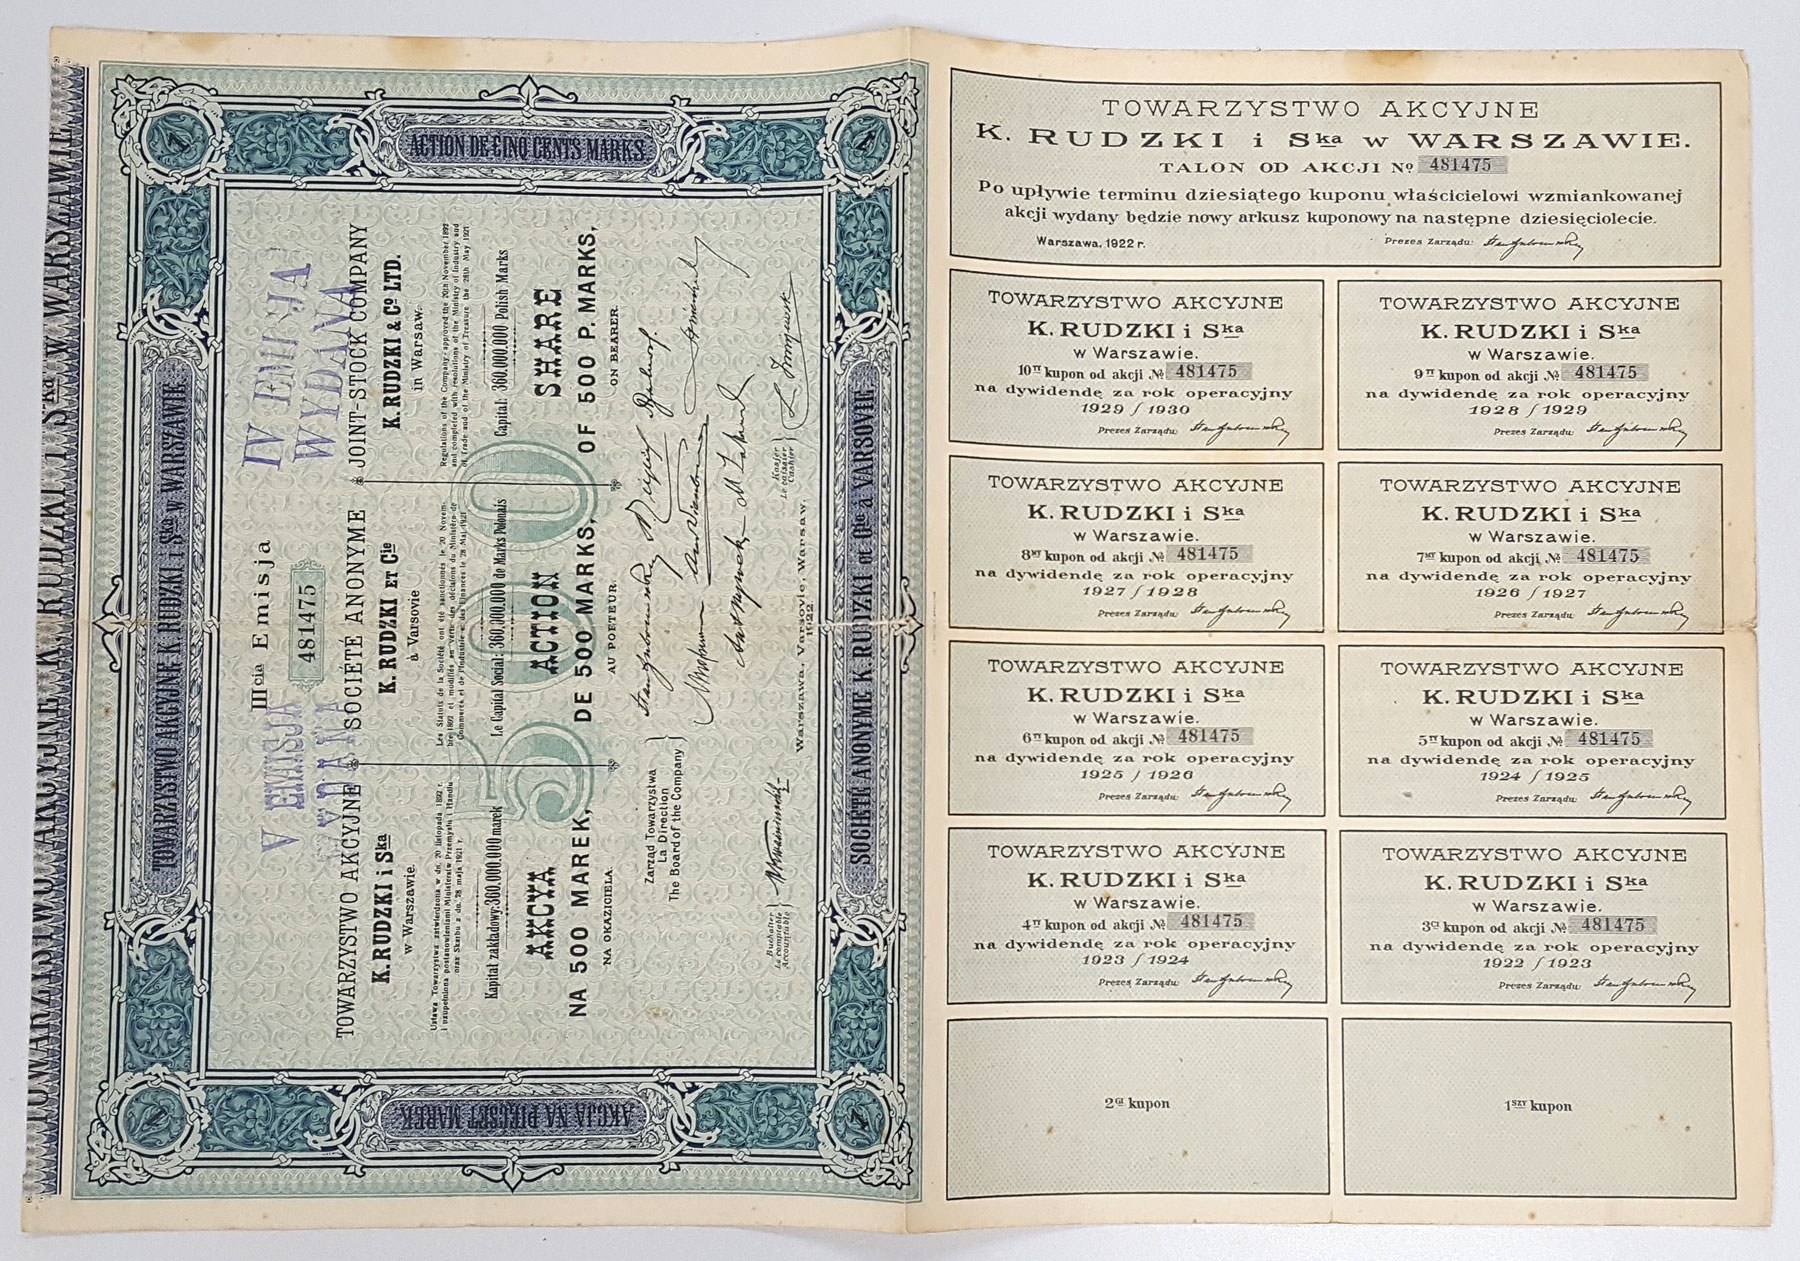 TOWARZYSTWO AKCYJNE K. RUDZKI i Ska w WARSZAWIE
ACTION DE CINQ CENTS MARKS
TOWARZYSTWO AKCYJNE K. RUDZKI i Ska w WARSZAWIE.
AKCJA NA PIĘĆSET MAREK
SOCIÉTÉ ANONYME K. RUDZKI et Cie à VARSOVIE.
1
1
1
1
IIIcia Emisja
481475
IV EMISJA
WYDANA
V EMISJA
WYDANA
TOWARZYSTWO AKCYJNE
K. RUDZKI i Ska
w Warszawie.
Ustawa Towarzystwa zatwierdzona w dn. 20 listopada 1892 r.
i uzupełniona postanowieniami Ministerstw Przemysłu i Handlu
oraz Skarbu z dn. 28 maja 1921 r.
Kapitał zakładowy: 360.000.000 marek
AKCYA
NA 500 MAREK,
NA OKAZICIELA.
SOCIÉTÉ ANONYME
K. RUDZKI ET Cie
à Varsovie
Les Statuts de la Société ont été sanctionnés le 20 Novem-
bre 1892 et modifiés en vertu des décisions du Ministère de
Commerce et de l'Industrie et des Finances le 28 Mai 1921
Le Capital Social: 360,000,000 de Marks Polonais
ACTION
DE 500 MARKS,
AU PORTEUR.
JOINT-STOCK COMPANY
K. RUDZKI & Co LTD.
in Warsaw.
Regulations of the Company approved the 20th November 1892
and completed with resolutions of the Ministry of Industry and
of Trade and of the Ministry of Treasure the 28th May 1921
Capital: 360.000.000 Polish Marks
SHARE
OF 500 P. MARKS,
ON BEARER.
500
Zarząd Towarzystwa
La Direction
The Board of the Company
Buchalter
Le comptable
Accountable
Kasjer
Le caissier
Cashier
Warszawa, Varsovie, Warsaw,
1922.
TOWARZYSTWO AKCYJNE
K. RUDZKI i Ska w WARSZAWIE.
TALON OD AKCJI No 481475
Po upływie terminu dziesiątego kuponu właścicielowi wzmiankowanej
akcji wydany będzie nowy arkusz kuponowy na następne dziesięciolecie.
Warszawa, 1922 r.
Prezes Zarządu:
TOWARZYSTWO AKCYJNE
K. RUDZKI i Ska
w Warszawie.
10ty kupon od akcji № 481475
na dywidendę za rok operacyjny
1929 / 1930
Prezes Zarządu:
TOWARZYSTWO AKCYJNE
K. RUDZKI i Ska
w Warszawie.
9ty kupon od akcji № 481475
na dywidendę za rok operacyjny
1928 / 1929
Prezes Zarządu:
TOWARZYSTWO AKCYJNE
K. RUDZKI i Ska
w Warszawie.
8my kupon od akcji № 481475
na dywidendę za rok operacyjny
1927 / 1928
Prezes Zarządu:
TOWARZYSTWO AKCYJNE
K. RUDZKI i Ska
w Warszawie.
7my kupon od akcji № 481475
na dywidendę za rok operacyjny
1926 / 1927
Prezes Zarządu:
TOWARZYSTWO AKCYJNE
K. RUDZKI i Ska
w Warszawie.
6ty kupon od akcji № 481475
na dywidendę za rok operacyjny
1925 / 1926
Prezes Zarządu:
TOWARZYSTWO AKCYJNE
K. RUDZKI i Ska
w Warszawie.
5ty kupon od akcji № 481475
na dywidendę za rok operacyjny
1924 / 1925
Prezes Zarządu:
TOWARZYSTWO AKCYJNE
K. RUDZKI i Ska
w Warszawie.
4ty kupon od akcji № 481475
na dywidendę za rok operacyjny
1923 / 1924
Prezes Zarządu:
TOWARZYSTWO AKCYJNE
K. RUDZKI i Ska
w Warszawie.
3ci kupon od akcji № 481475
na dywidendę za rok operacyjny
1922 / 1923
Prezes Zarządu:
2gi kupon
1szy kupon